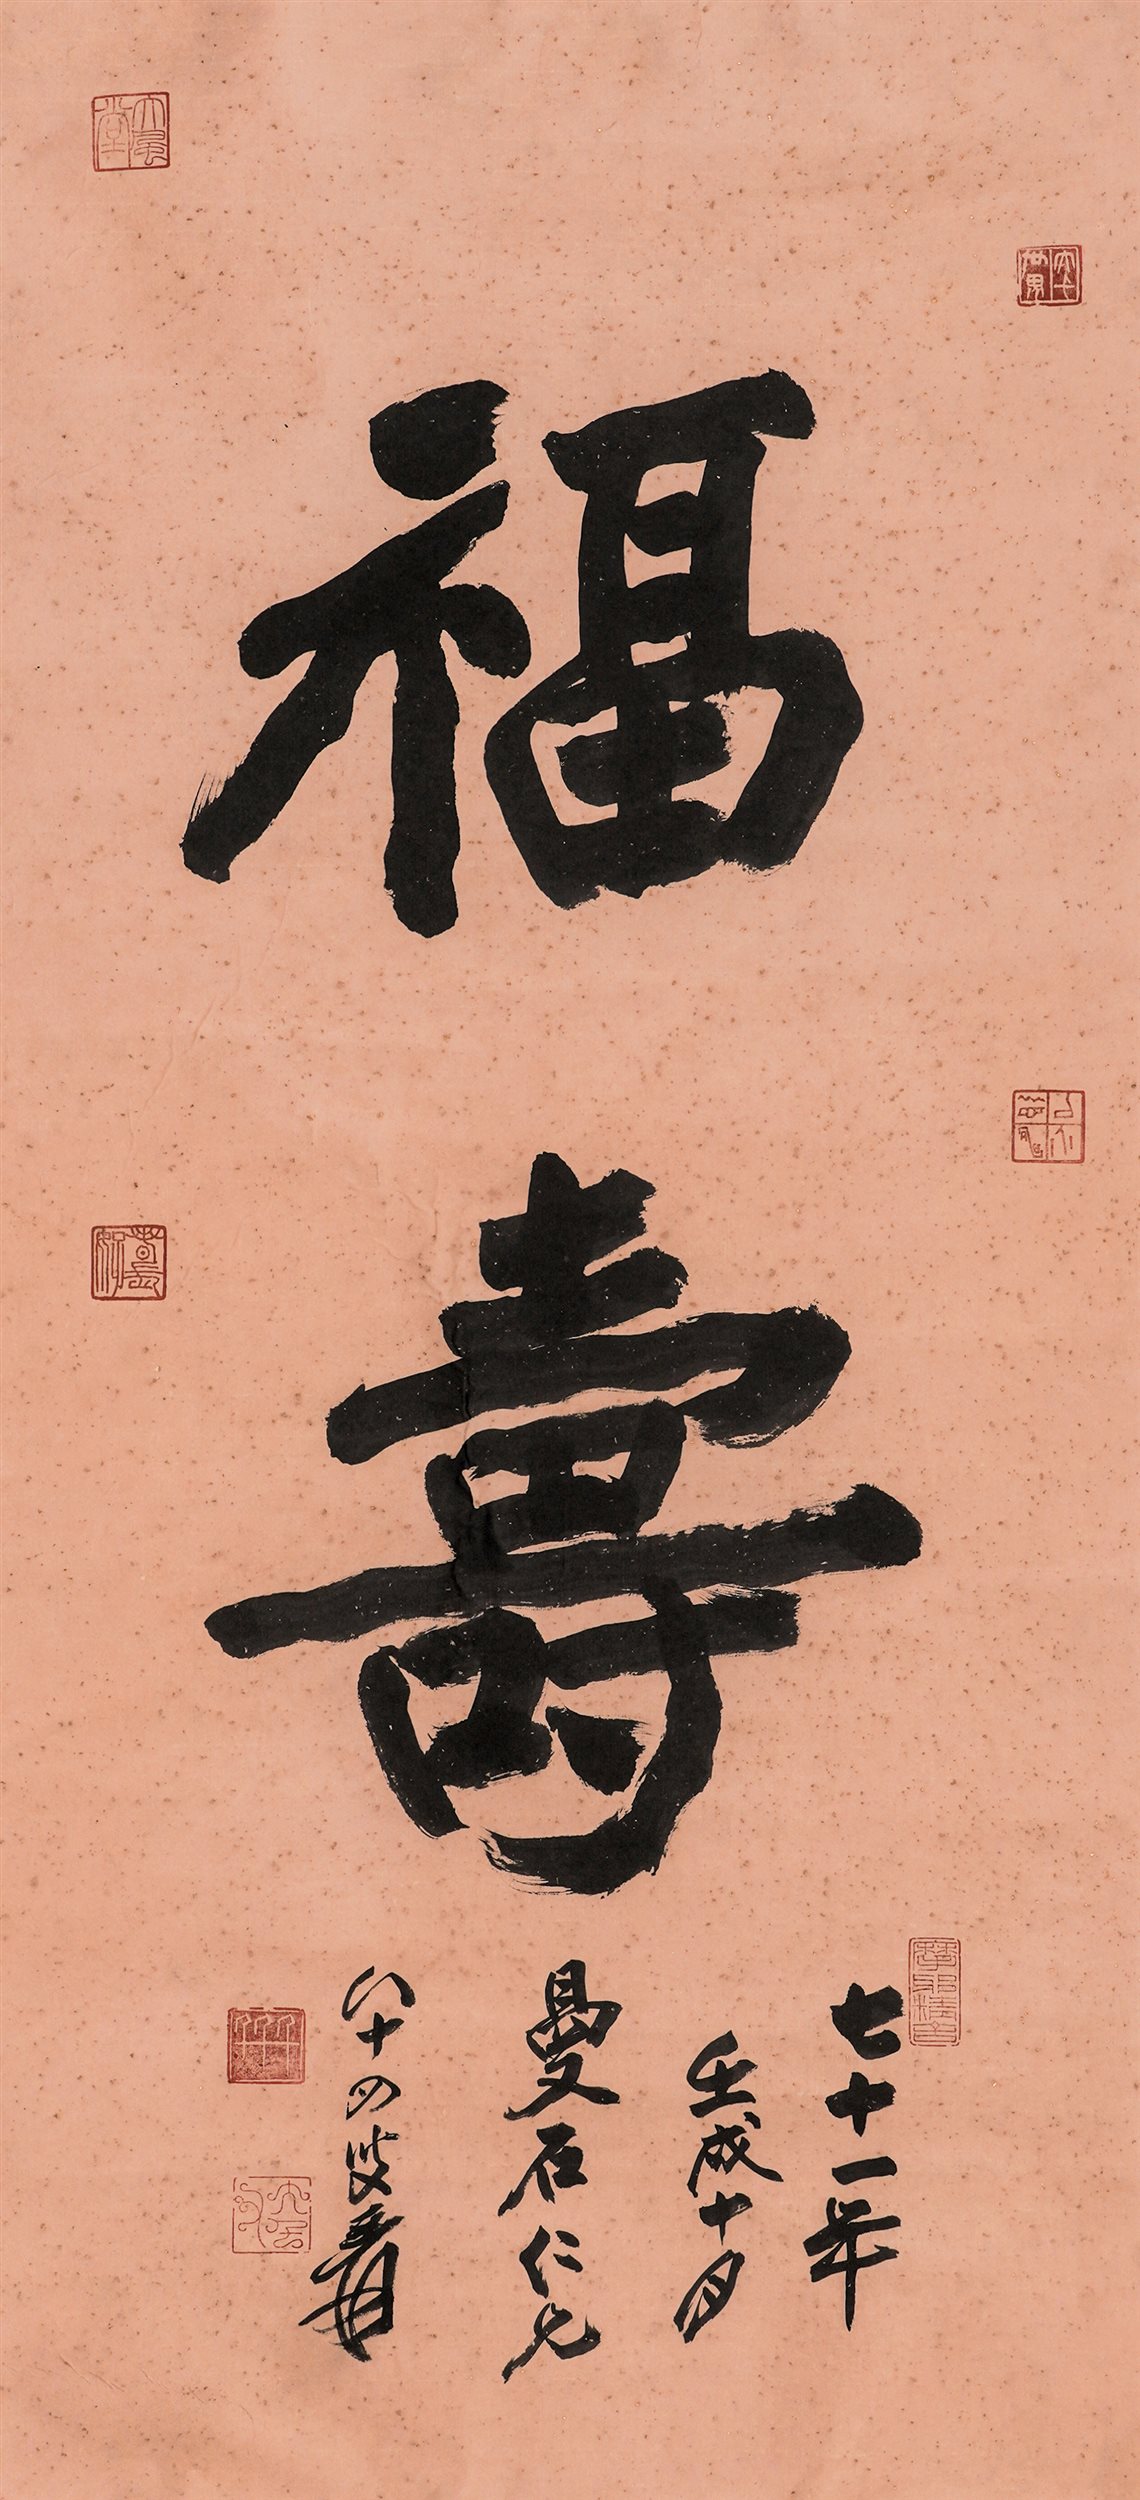 福
壽
七十一年
壬戌十月
曼石仁兄
八十四叟爰